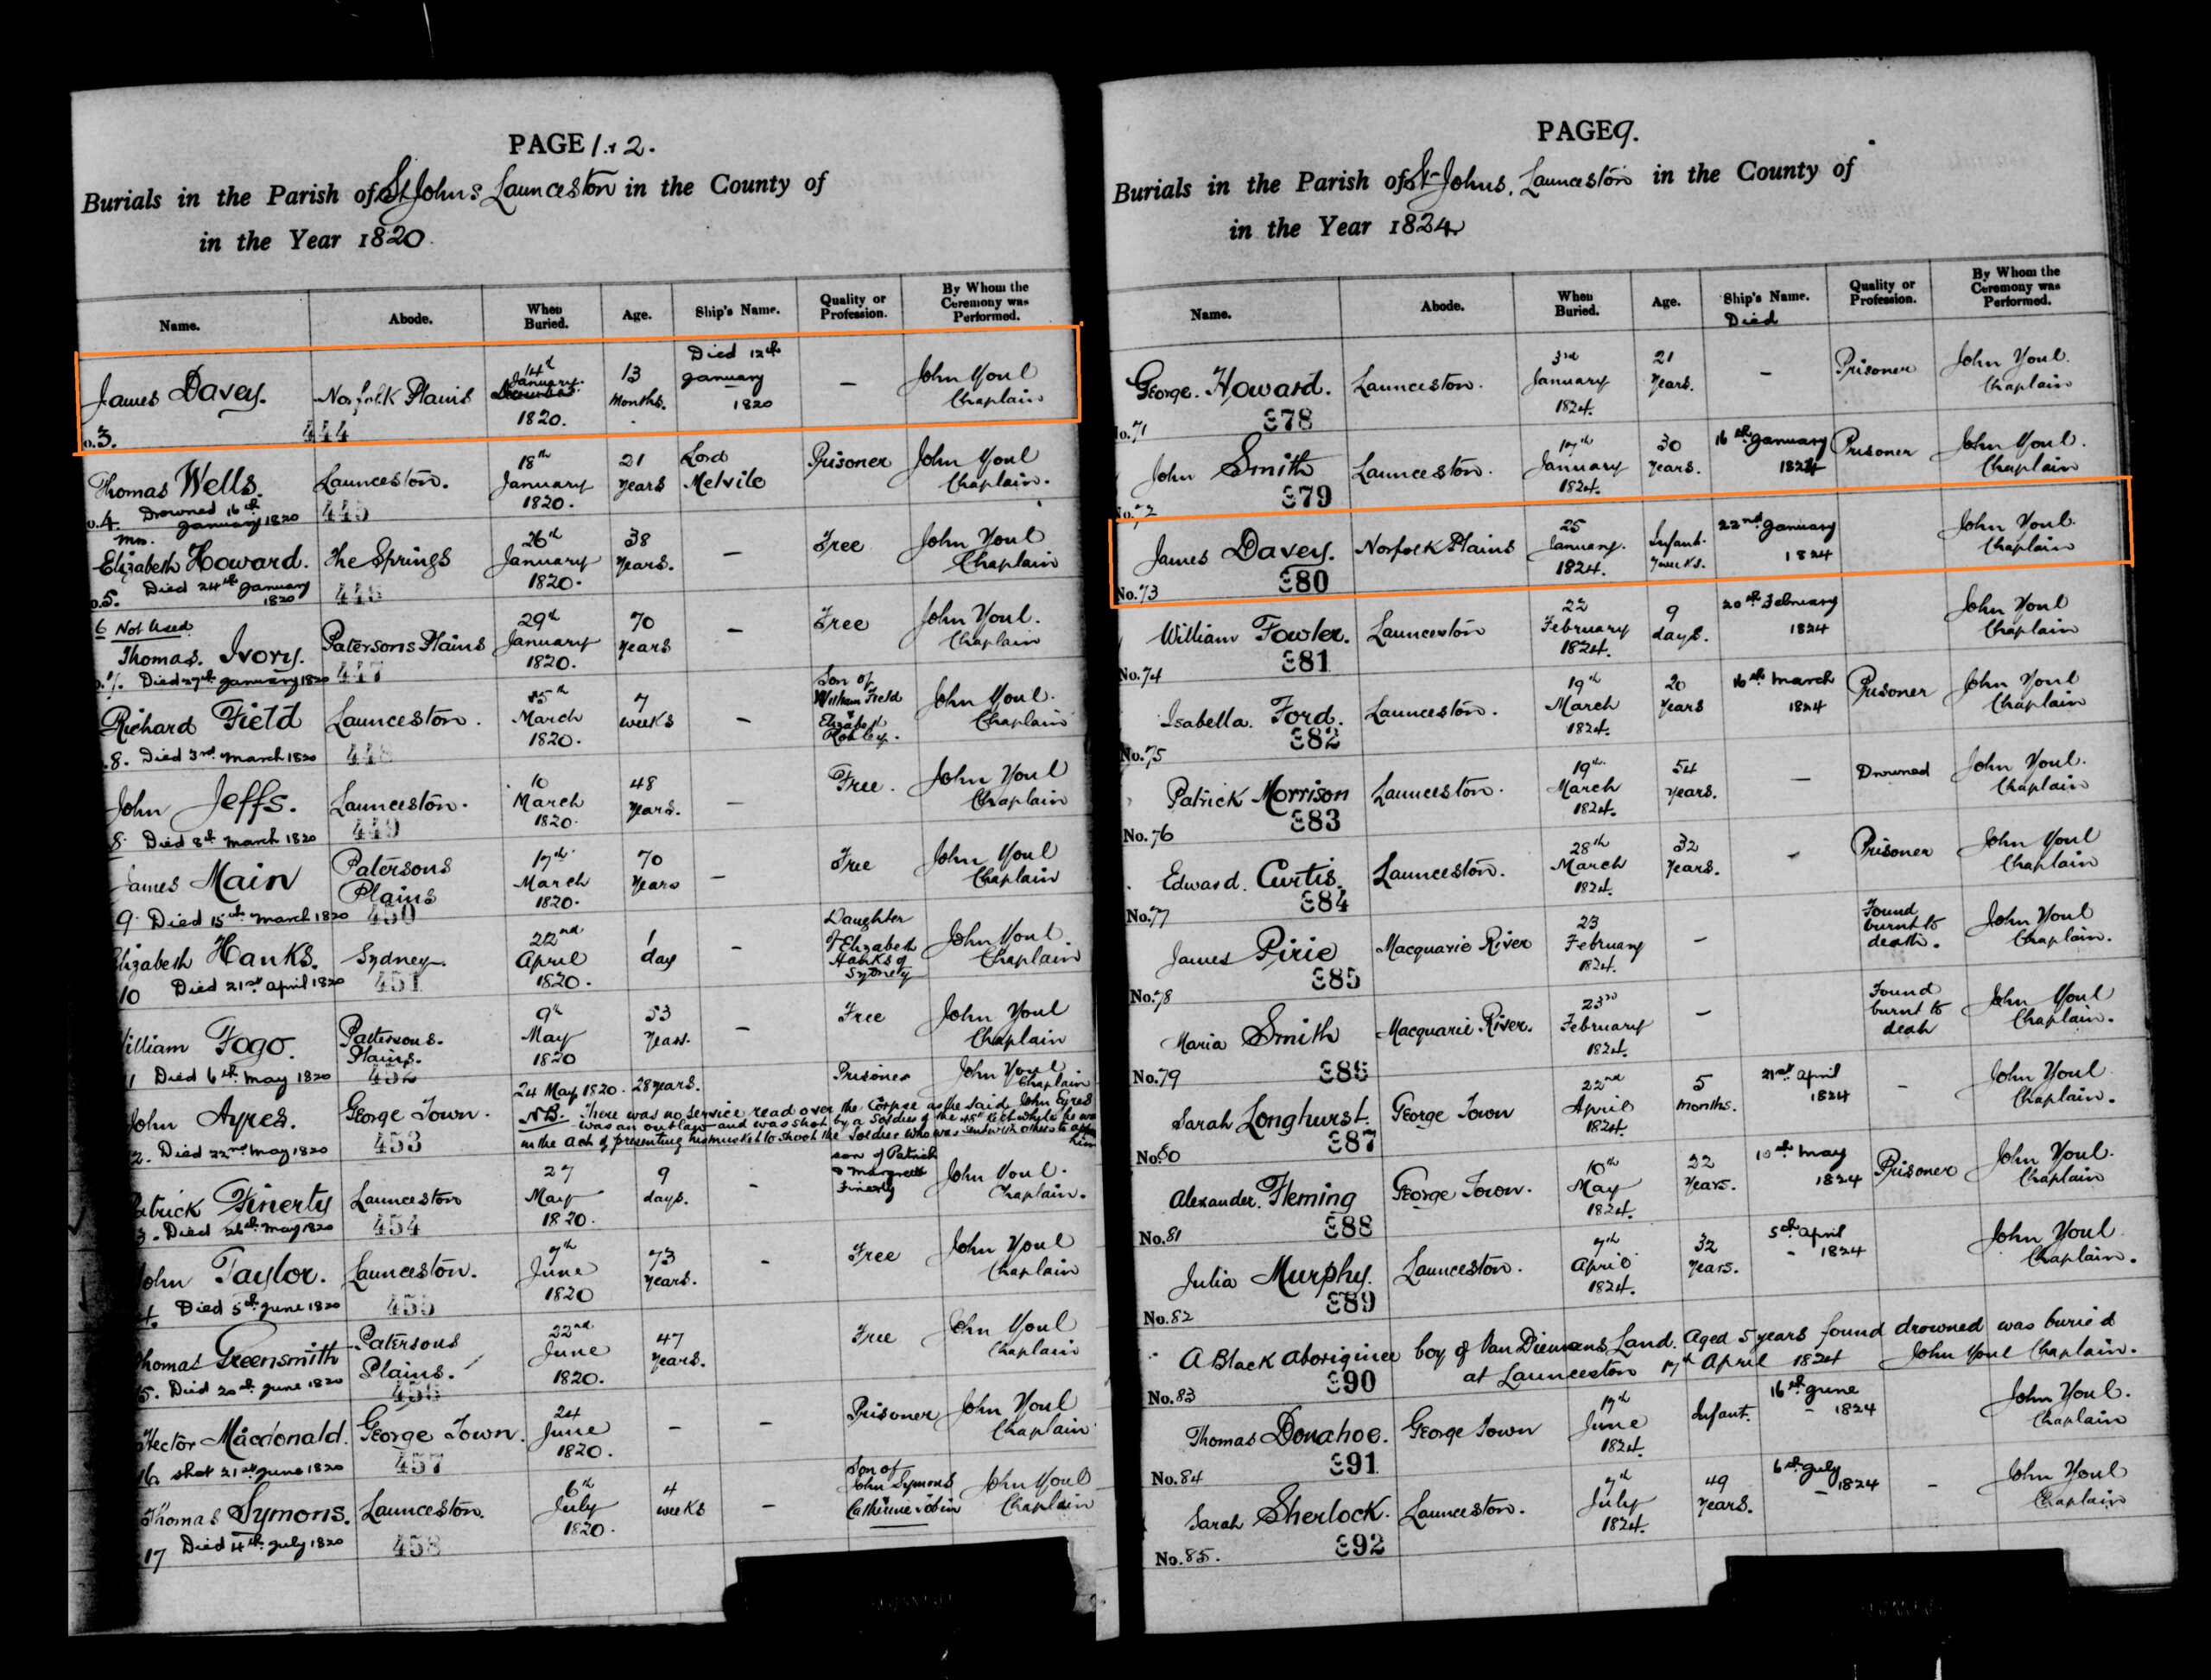 PAGE 1.+ 2.
Burials in the Parish of St Johns Launceston in the County of
in the Year 1820.
Name. Abode. When Buried. Age. Ship's Name. Quality or Profession. By Whom the Ceremony was Performed.
James Davey. Norfolk Plains 14th January 1820. 13 Months. Died 12th January 1820 — John Youl Chaplain
o.3. 444
Thomas Wells. Launceston. 18th January 1820. 21 Years Lord Melvile Prisoner John Youl Chaplain.
o.4. Drowned 16th January 1820 445
Mrs. Elizabeth Howard. The Springs 26th January 1820. 38 Years. — Free John Youl Chaplain
o.5. Died 24th January 1820 446
6 Not Used
Thomas. Ivory. Patersons Plains 29th January 1820. 70 Years — Free John Youl Chaplain
Died 27th January 1820 447
Richard Field Launceston. 5th March 1820. 7 weeks — Son of William Field & Elizabeth John Youl. Chaplain
.8. Died 3rd March 1820 448
John Jeffs. Launceston. 10 March 1820. 48 Years. — Free. John Youl Chaplain
8. Died 8th March 1820 449
James Main Patersons Plains 17th March 1820. 70 Years — Free John Youl Chaplain
9. Died 15th March 1820 450
Elizabeth Hanks. Sydney. 22nd April 1820. 1 day — Daughter of Elizabeth Hanks of Sydney John Youl. Chaplain
10 Died 21st April 1820 451
William Fogo. Patersons. Plains. 9th May 1820 53 Years. — Free John Youl Chaplain
1 Died 6th May 1820 452
John Ayres. George Town. 24 May 1820. 28 years. Prisoner John Youl Chaplain
NB. There was no service read over the Corpse as the said John Eyres
was an outlaw and was shot by a Soldier of the 48th Regt while he was
in the act of presenting his musket to shoot the Soldier who was sent with others to him
2. Died 22nd May 1820 453
Patrick Finerty Launceston 27 May 1820. 9 days. — son of Patrick & Margrett Finerty John Youl. Chaplain.
3. Died 26th May 1820 454
John Taylor. Launceston. 7th June 1820 73 Years. — Free John Youl Chaplain
4. Died 5th June 1820 455
Thomas Greensmith Patersons Plains. 22nd June 1820. 47 Years. Free John Youl Chaplain
5. Died 20th June 1820 456
Hector Macdonald. George Town. 24 June 1820. — — Prisoner John Youl Chaplain
16. shot 21st June 1820 457
Thomas Symons. Launceston. 6th July 1820. 4 weeks — Son of John Symons & Catherine Tobin John Youl Chaplain
17 Died 4th July 1820 458
PAGE 9.
Burials in the Parish of St Johns, Launceston in the County of
in the Year 1824
Name. Abode. When Buried. Age. Ship's Name. Died Quality or Profession. By Whom the Ceremony was Performed.
George. Howard. Launceston. 3rd January 1824. 21 Years. — Prisoner John Youl. Chaplain
No.71 378
John Smith Launceston. 17th January 1824. 30 Years. 16th January 1824 Prisoner John Youl. Chaplain
No.72 379
James Davey. Norfolk Plains 25 January. 1824. Infant. 7 weeks. 22nd January 1824 John Youl. Chaplain
No.73 380
William Fowler. Launceston 22 February 1824. 9 days. 20th February 1824 John Youl Chaplain
No.74 381
Isabella. Ford. Launceston. 19th March 1824. 20 Years 16th March 1824 Prisoner John Youl Chaplain
No.75 382
Patrick Morrison Launceston. 19th March 1824. 54 Years. — Drowned John Youl. Chaplain
No.76 383
Edward. Curtis. Launceston. 28th March 1824. 32 Years. — Prisoner John Youl Chaplain
No.77 384
James Pirie Macquarie River 23 February 1824. — Found burnt to death. John Youl Chaplain.
No.78 385
Maria Smith Macquarie River. 23rd February 1824. — Found burnt to death John Youl Chaplain.
No.79 386
Sarah Longhurst. George Town 22nd April 1824. 5 months. 21st April 1824 — John Youl Chaplain.
No.80 387
Alexander. Fleming George Town. 10th May 1824. 22 Years. 10th May 1824 Prisoner John Youl. Chaplain
No.81 388
Julia Murphy. Launceston. 7th April 1824. 32 Years. 5th April 1824 John Youl Chaplain.
No.82 389
A Black Aboriginee boy of Van Diemans Land. Aged 5 years found drowned was buried
at Launceston 17th April 1824 John Youl Chaplain.
No.83 390
Thomas Donahoe. George Town 17th June 1824. Infant. 16th June 1824 John Youl. Chaplain
No.84 391
Sarah Sherlock. Launceston. 7th July 1824. 49 Years. 6th July 1824 — John Youl Chaplain
No.85. 392